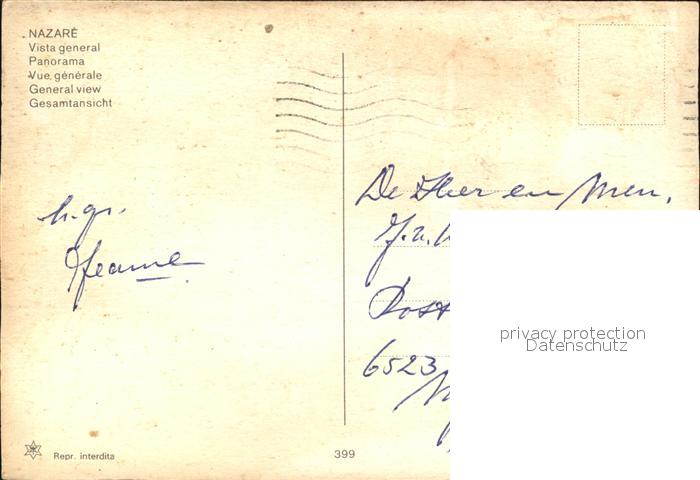 NAZARÉ
Vista general
Panorama
Vue générale
General view
Gesamtansicht
h. gr.
Jeanne
De Heer en Mevr.
Post
6523
privacy protection
Datenschutz
Repr. interdita
399